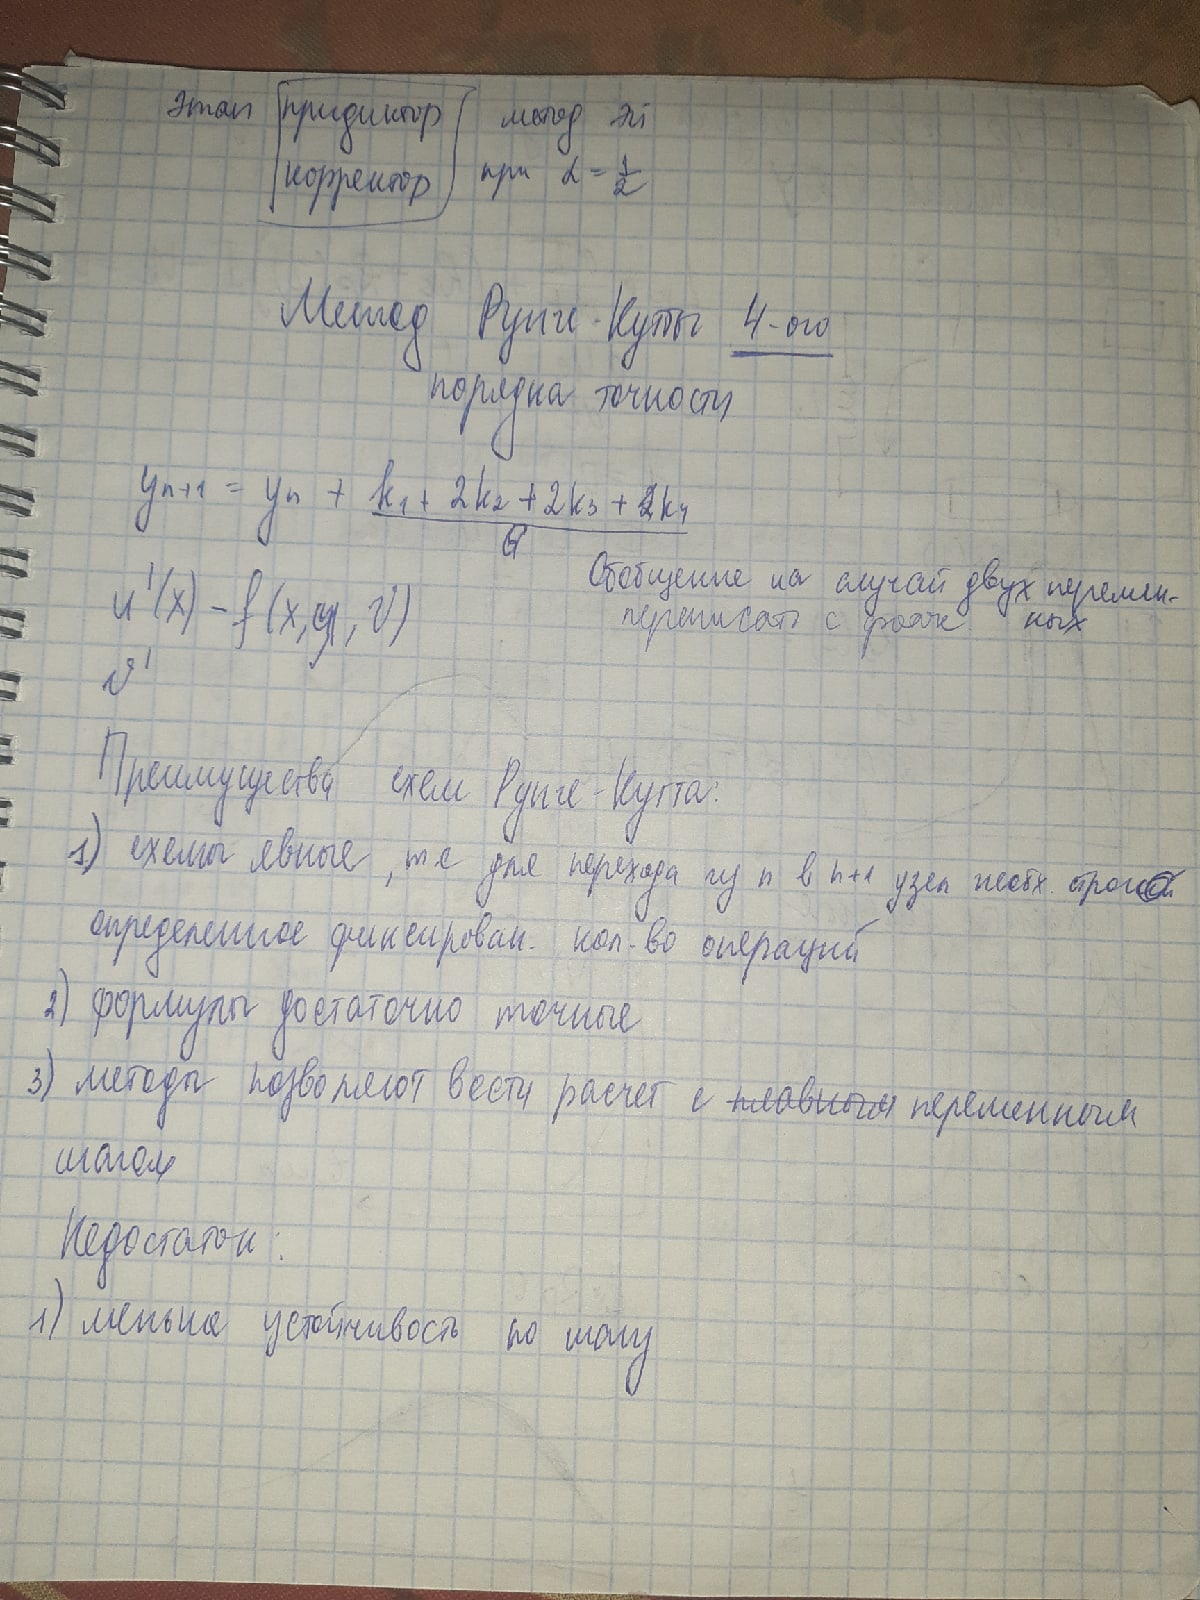 этап придиктор метод
корректор при α = 1/2
Метод Рунге-Кутты 4-ого
порядка точности
yn+1 = yn + k1 + 2k2 + 2k3 + k4
6
u'(x) - f(x, y, v)
Обобщение на случай двух перемен-
переписать с ных
v'
Преимущества схем Рунге-Кутта:
1) схемы явные, т е для перехода из n в n+1 узел необх. строго
определенное фиксирован. кол-во операций
2) формулы достаточно точные
3) методы позволяют вести расчет с плавным переменным
шагом
Недостаток:
1) меньша устойчивость по шагу